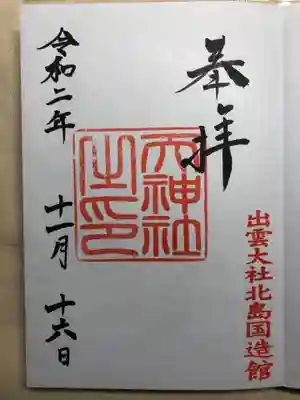 奉拝
出雲大社北島国造館
天神社
之印
令和二年 十一月 十六日